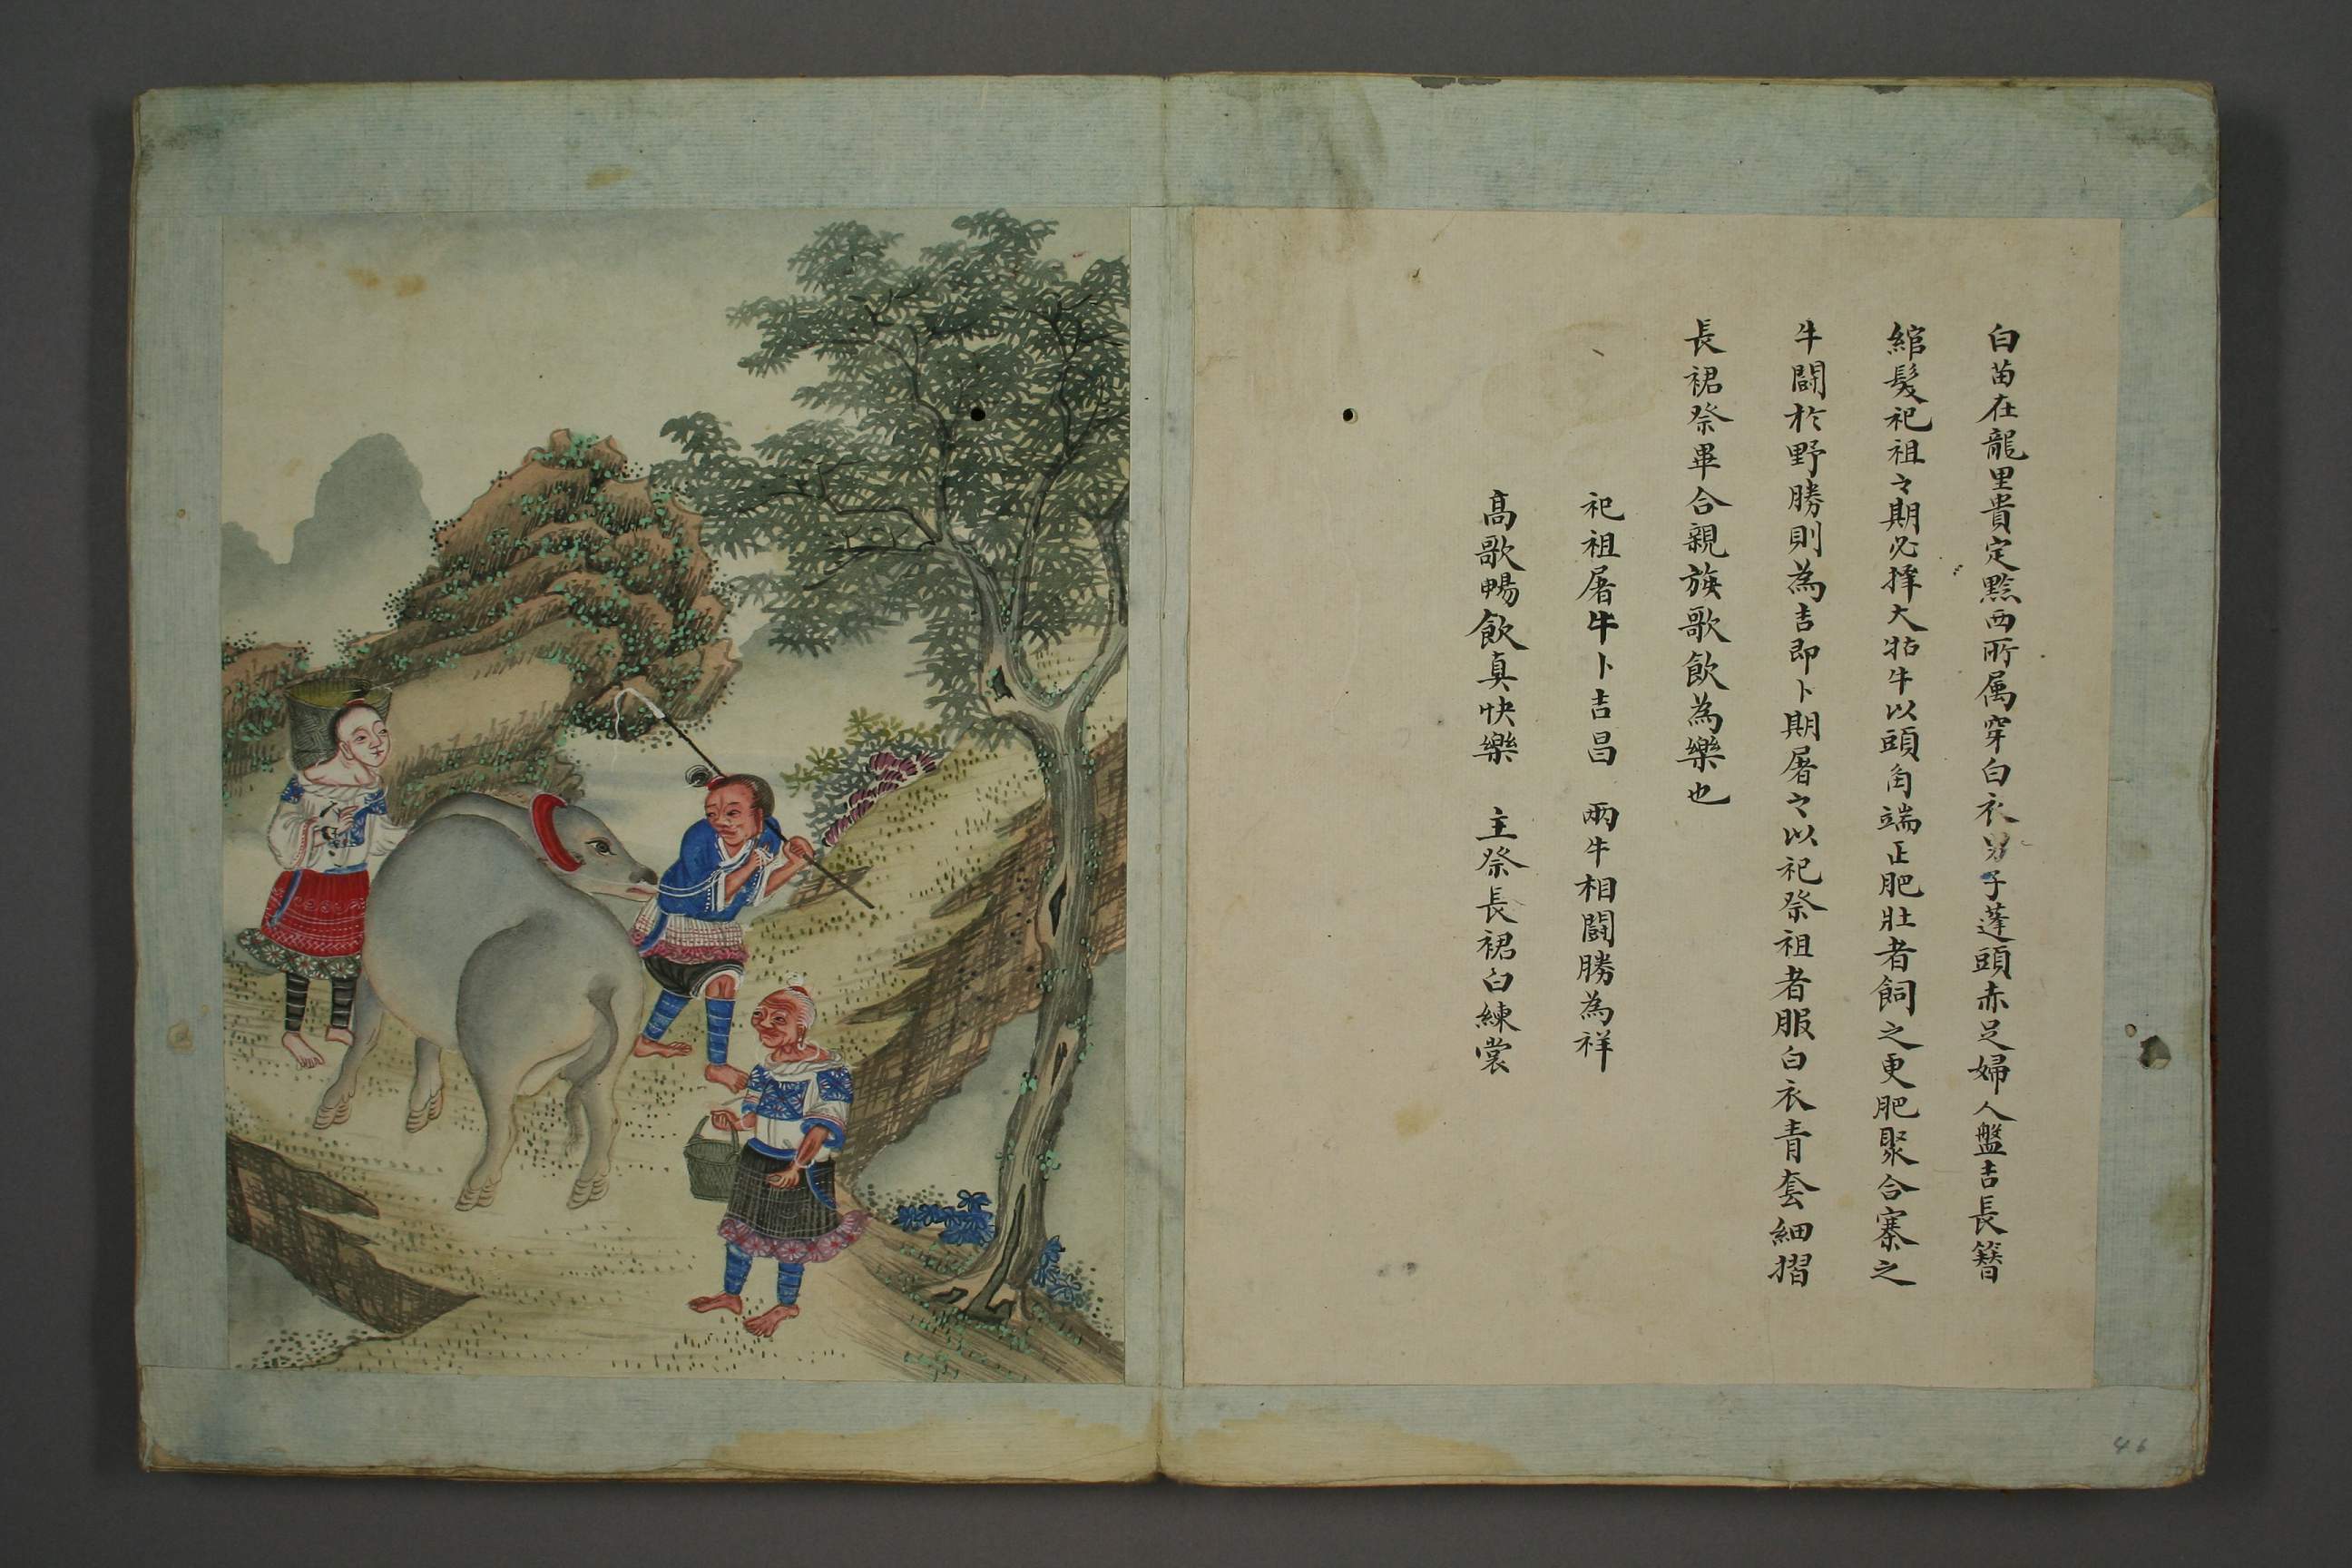 白苗在龍里貴定黔西所属穿白衣男子蓬頭赤足婦人盤吉長簪
綰髮祀祖々期必擇大牯牛以頭角端正肥壯者飼之更肥聚合寨之
牛鬪於野勝則為吉即卜期屠々以祀祭祖者服白衣青套細摺
長裙祭畢合親族歌飲為樂也
祀祖屠牛卜吉昌 兩牛相鬪勝為祥
高歌暢飲真快樂 主祭長裙白練裳
46